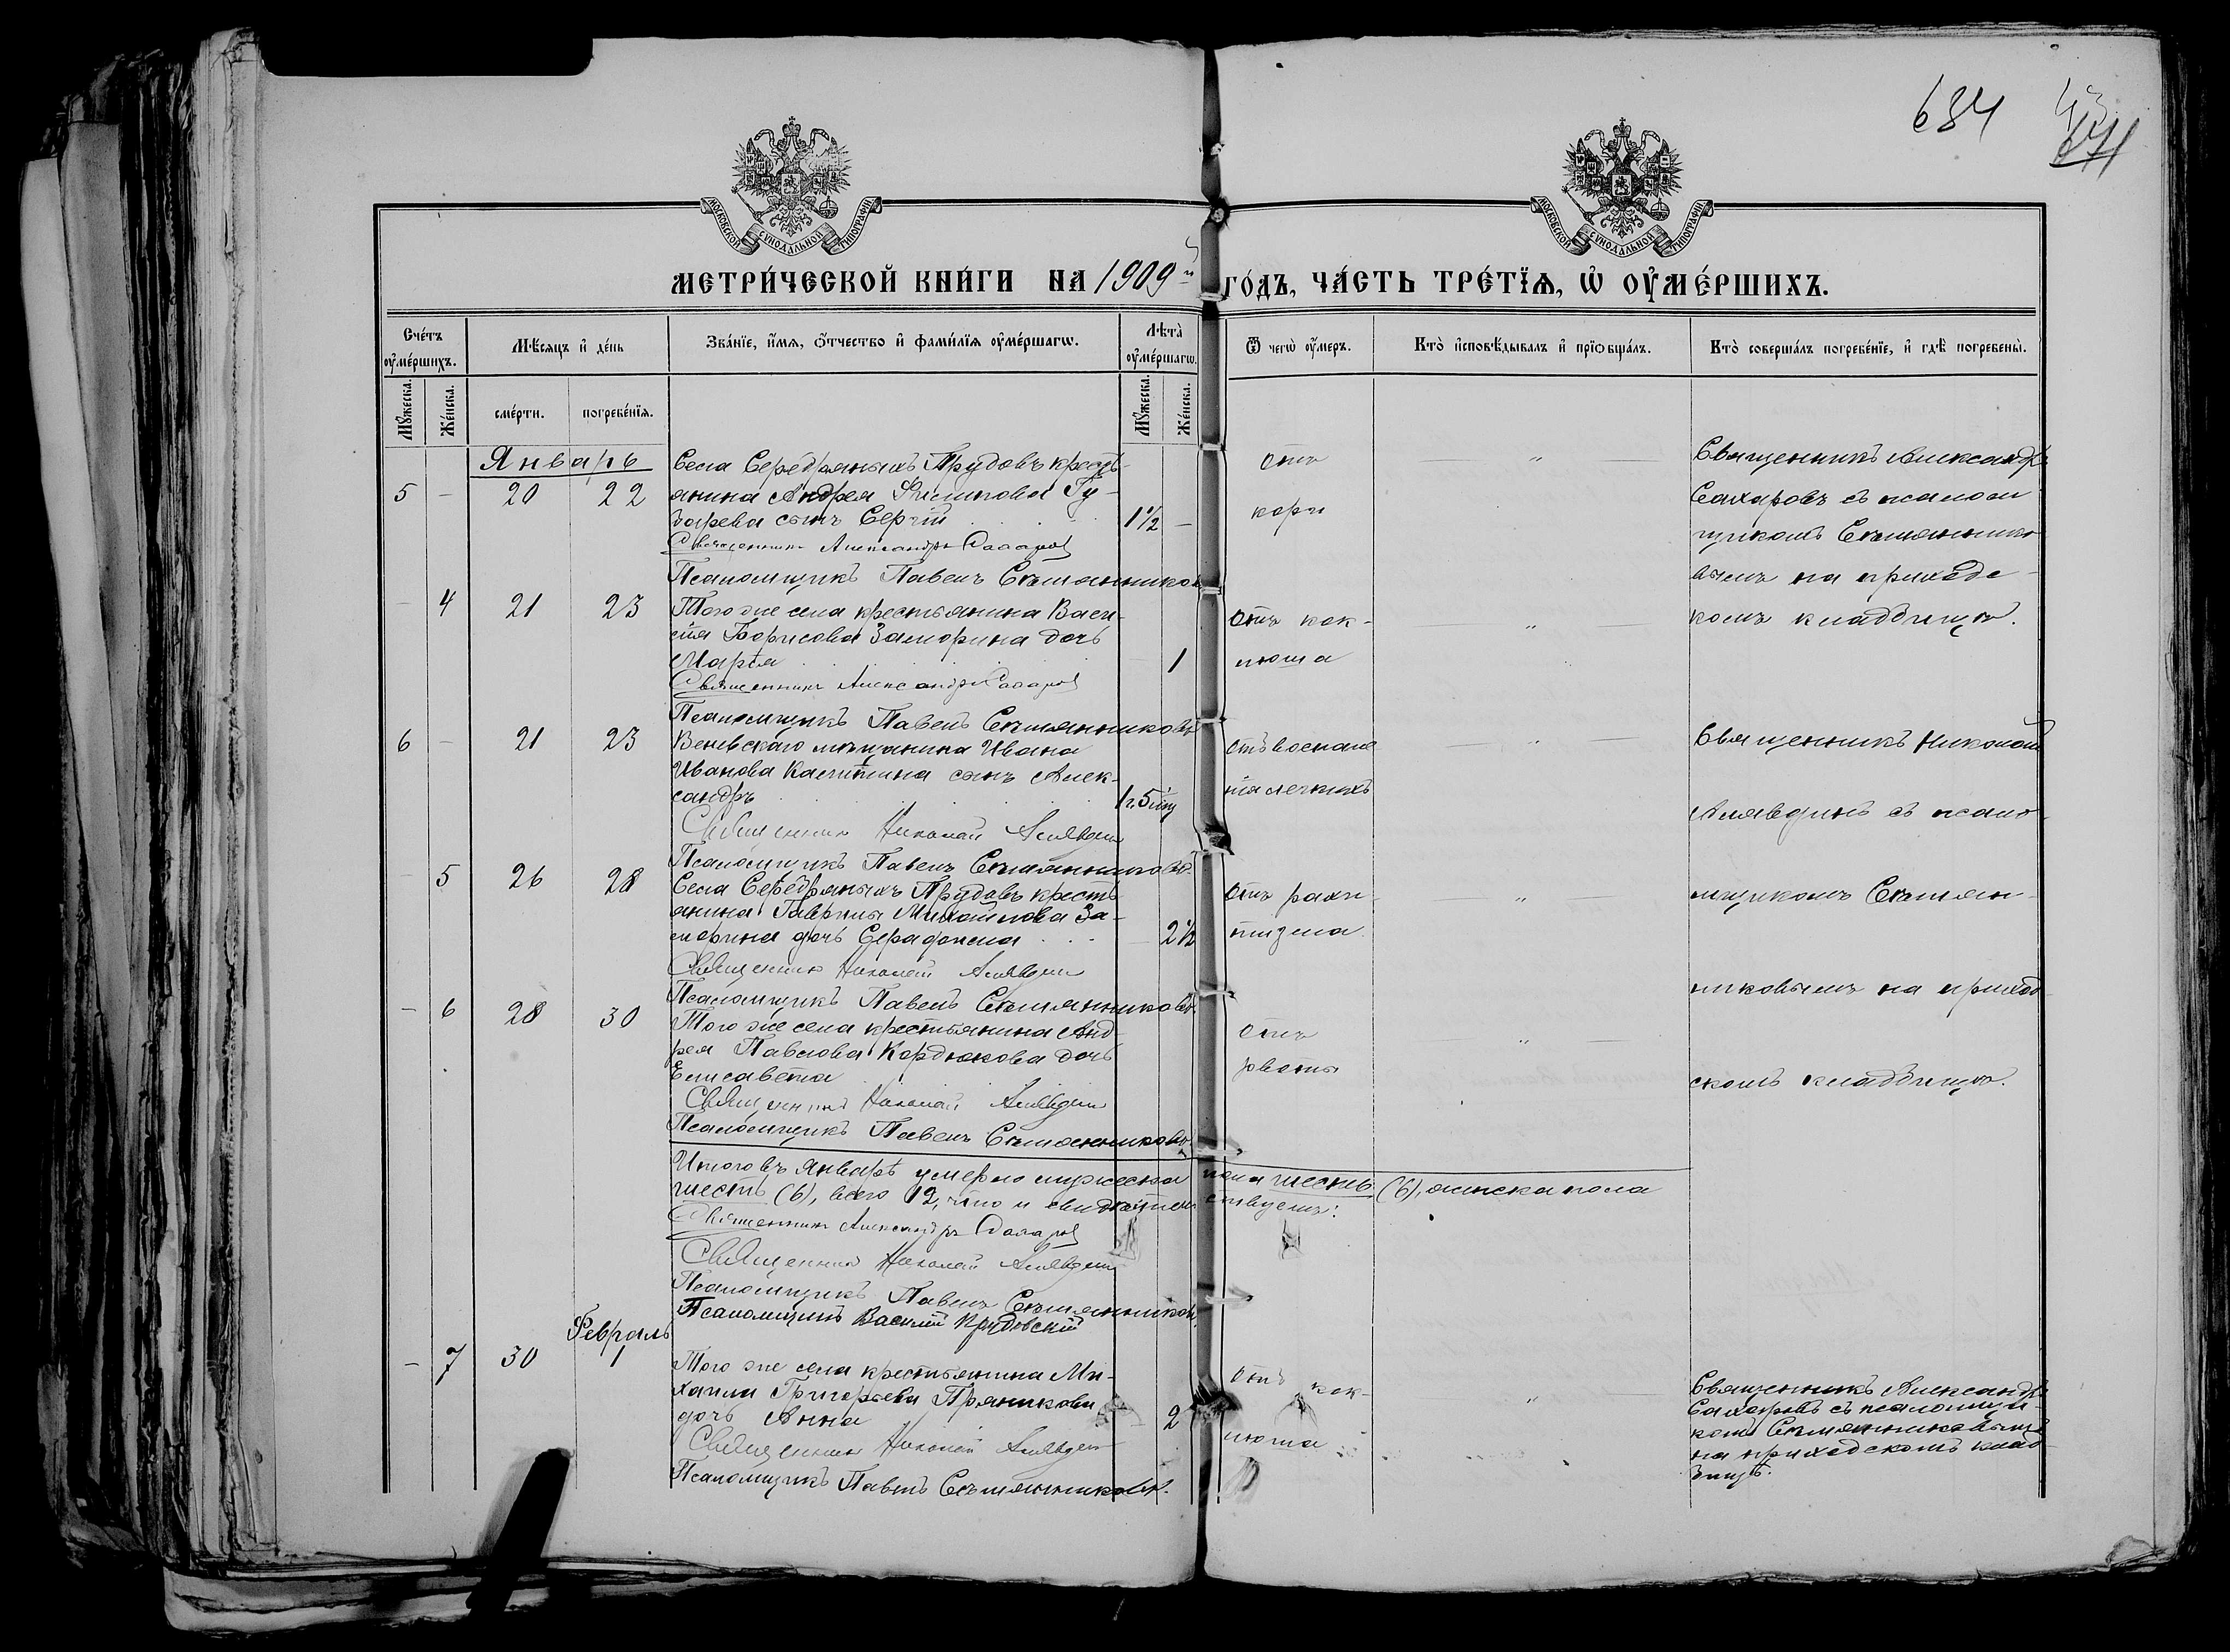 684
МОСКОВСКОЙ СѴНОДАЛЬНОЙ ТИПОГРАФІИ
МОСКОВСКОЙ СѴНОДАЛЬНОЙ ТИПОГРАФІИ
МЕТРИ́ЧЕСКОЙ КНИ́ГИ НА 1909й ГО́ДЪ, ЧА́СТЬ ТРЕ́ТЇѦ, Ѡ҆ ОУ҆МЕ́РШИХЪ.
Сче́тъ оу҆ме́ршихъ.
Мѣ́сяцъ и҆ де́нь
Зва́нїе, и҆́мѧ, ѻ҆́тчество и҆ фами́лїѧ оу҆ме́ршагѡ.
Лѣта̀ оу҆ме́ршагѡ.
Ѿ чегѡ̀ оу҆́меръ.
Кто̀ и҆сповѣ́дывалъ и҆ прїѡбща́лъ.
Кто̀ соверша́лъ погребе́нїе, и҆ гдѣ̀ погребены̀.
Мꙋ́жеска.
Же́нска.
сме́рти.
погребе́нїѧ.
Мꙋ́жеска.
Же́нска.
Январь
5 - 20 22
Села Серебряныхъ Прудовъ кресть-
янина Андрея Филипова Гу-
зарева сынъ Сергій 1½ -
Священникъ Александръ Сахаровъ
Псаломщикъ Павелъ Съмянниковъ
Отъ
кори
"
Священникъ Александръ
Сахаровъ съ псалом
щикомъ Съмяннико
вымъ на приходс-
комъ кладбищѣ.
- 4 21 23
Того же села крестьянина Васи-
лія Борисова Заморина дочь
Марія 1
Священникъ Александръ Сахаровъ
Псаломщикъ Павелъ Съмянниковъ
Отъ кок-
люша
"
6 - 21 23
Веневскаго мѣщанина Ивана
Иванова сынъ Алек-
сандръ 1 г. 5 м.
Священникъ Николай Алявдинъ
Псаломщикъ Павелъ Съмянниковъ
Отъ воспале
нія легкихъ
"
Священникъ Николай
Алявдинъ съ псало-
мщикомъ Съмян-
никовымъ на приход
скомъ кладбищѣ.
- 5 26 28
Села Серебряныхъ Прудовъ кресть
янина Гавриила Михайлова За-
морина дочь Серафима - 2½
Священникъ Николай Алявдинъ
Псаломщикъ Павелъ Съмянниковъ
Отъ рахи-
тизма
"
- 6 28 30
Того же села крестьянина Анд-
рея Павлова Кордюкова дочь
Елисавета
Священникъ Николай Алявдинъ
Псаломщикъ Павелъ Съмянниковъ
Отъ
рвоты
"
Итого въ Январѣ умерло мужеска пола шесть (6), женска пола
шесть (6), всего 12, что и свидѣтельствуемъ:
Священникъ Александръ Сахаровъ
Священникъ Николай Алявдинъ
Псаломщикъ Павелъ Съмянниковъ
Псаломщикъ Василій
Февраль
- 7 30 1
Того же села крестьянина Ми-
хаила Григорьева Пряникова
дочь Анна 2
Священникъ Николай Алявдинъ
Псаломщикъ Павелъ Съмянниковъ.
Отъ кок-
люша
"
Священникъ Александръ
Сахаровъ съ псаломщи-
комъ Съмянниковымъ
на приходскомъ клад-
бищѣ.